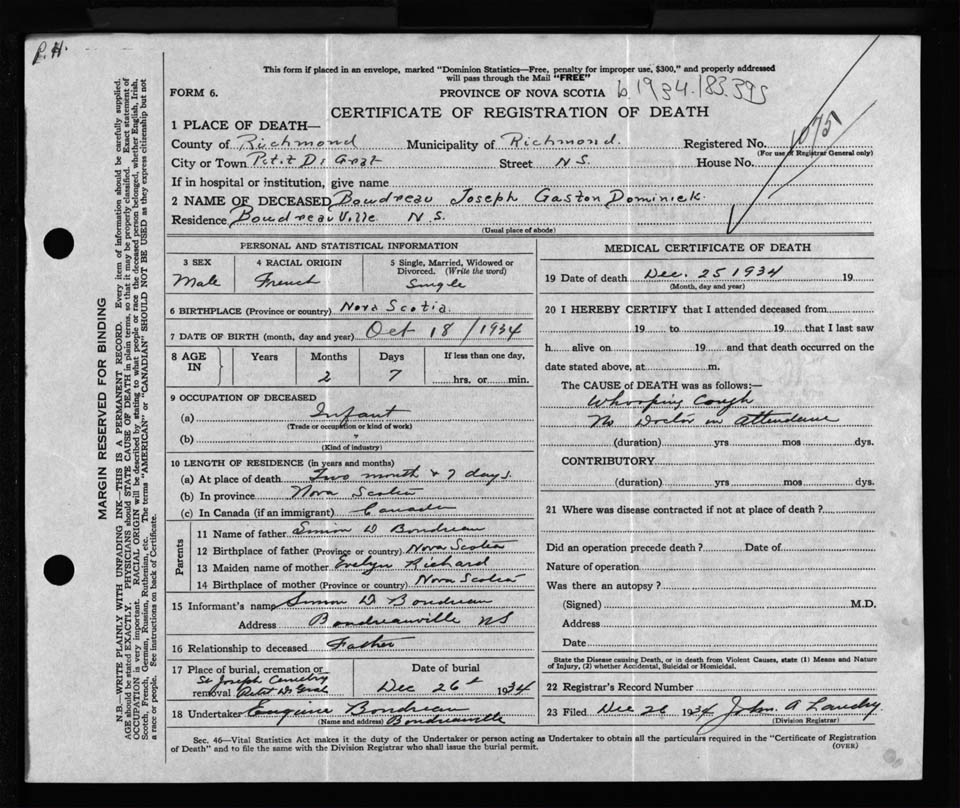 P. H.
This form if placed in an envelope, marked "Dominion Statistics—Free, penalty for improper use, $300," and properly addressed
will pass through the Mail "FREE"
FORM 6. PROVINCE OF NOVA SCOTIA 1934.183.395
CERTIFICATE OF REGISTRATION OF DEATH
1 PLACE OF DEATH—
County of Richmond Municipality of Richmond. Registered No. 10751
(For use of Registrar General only)
City or Town Petit D. Grat Street N S. House No.
If in hospital or institution, give name
2 NAME OF DECEASED Boudreau Joseph Gaston Dominick.
Residence BoudreauVille N. S.
(Usual place of abode)
PERSONAL AND STATISTICAL INFORMATION
3 SEX 4 RACIAL ORIGIN 5 Single, Married, Widowed or Divorced. (Write the word)
Male French Single
6 BIRTHPLACE (Province or country) Nova Scotia.
7 DATE OF BIRTH (month, day and year) Oct 18/1934
8 AGE IN Years Months Days If less than one day,
2 7 hrs. or min.
9 OCCUPATION OF DECEASED
(a) Infant
(Trade or occupation or kind of work)
(b)
(Kind of industry)
10 LENGTH OF RESIDENCE (in years and months)
(a) At place of death Two month & 7 days.
(b) In province Nova Scotia
(c) In Canada (if an immigrant) Canada
Parents
11 Name of father Simon D Boudreau
12 Birthplace of father (Province or country) Nova Scotia
13 Maiden name of mother Evelyn Richard
14 Birthplace of mother (Province or country) Nova Scotia
15 Informant's name Simon D Boudreau
Address Boudreauville NS
16 Relationship to deceased Father
17 Place of burial, cremation or removal St Joseph Cemetry Petit De Grat
Date of burial Dec 26t 1934
18 Undertaker Eugene Boudreau
(Name and address) Boudreauville
MEDICAL CERTIFICATE OF DEATH
19 Date of death Dec. 25 1934 19
(Month, day and year)
20 I HEREBY CERTIFY that I attended deceased from
19 to 19 that I last saw
h alive on 19 and that death occurred on the
date stated above, at m.
The CAUSE of DEATH was as follows:—
Whooping Cough
No Doctor in attendance
(duration) yrs mos dys.
CONTRIBUTORY
(duration) yrs mos dys.
21 Where was disease contracted if not at place of death?
Did an operation precede death? Date of
Nature of operation
Was there an autopsy?
(Signed) M.D.
Address
Date
State the Disease causing Death, or in death from Violent Causes, state (1) Means and Nature
of Injury, (2) whether Accidental, Suicidal or Homicidal.
22 Registrar's Record Number
23 Filed Dec 26 1934 John. A Landry
(Division Registrar)
Sec. 46—Vital Statistics Act makes it the duty of the Undertaker or person acting as Undertaker to obtain all the particulars required in the "Certificate of Registration
of Death" and to file the same with the Division Registrar who shall issue the burial permit. (OVER)
MARGIN RESERVED FOR BINDING
N.B.—WRITE PLAINLY WITH UNFADING INK—THIS IS A PERMANENT RECORD. Every item of information should be carefully supplied.
AGE should be stated EXACTLY. PHYSICIANS should STATE CAUSE OF DEATH in plain terms, so that it may be properly classified. Exact statement of
OCCUPATION is very important. RACIAL ORIGIN will be described by stating to what people or race the deceased person belonged, whether English, Irish,
Scotch, French, German, Russian, Ruthenian, etc. The terms "AMERICAN" or "CANADIAN" SHOULD NOT BE USED as they express citizenship but not
a race or people. See instructions on back of Certificate.